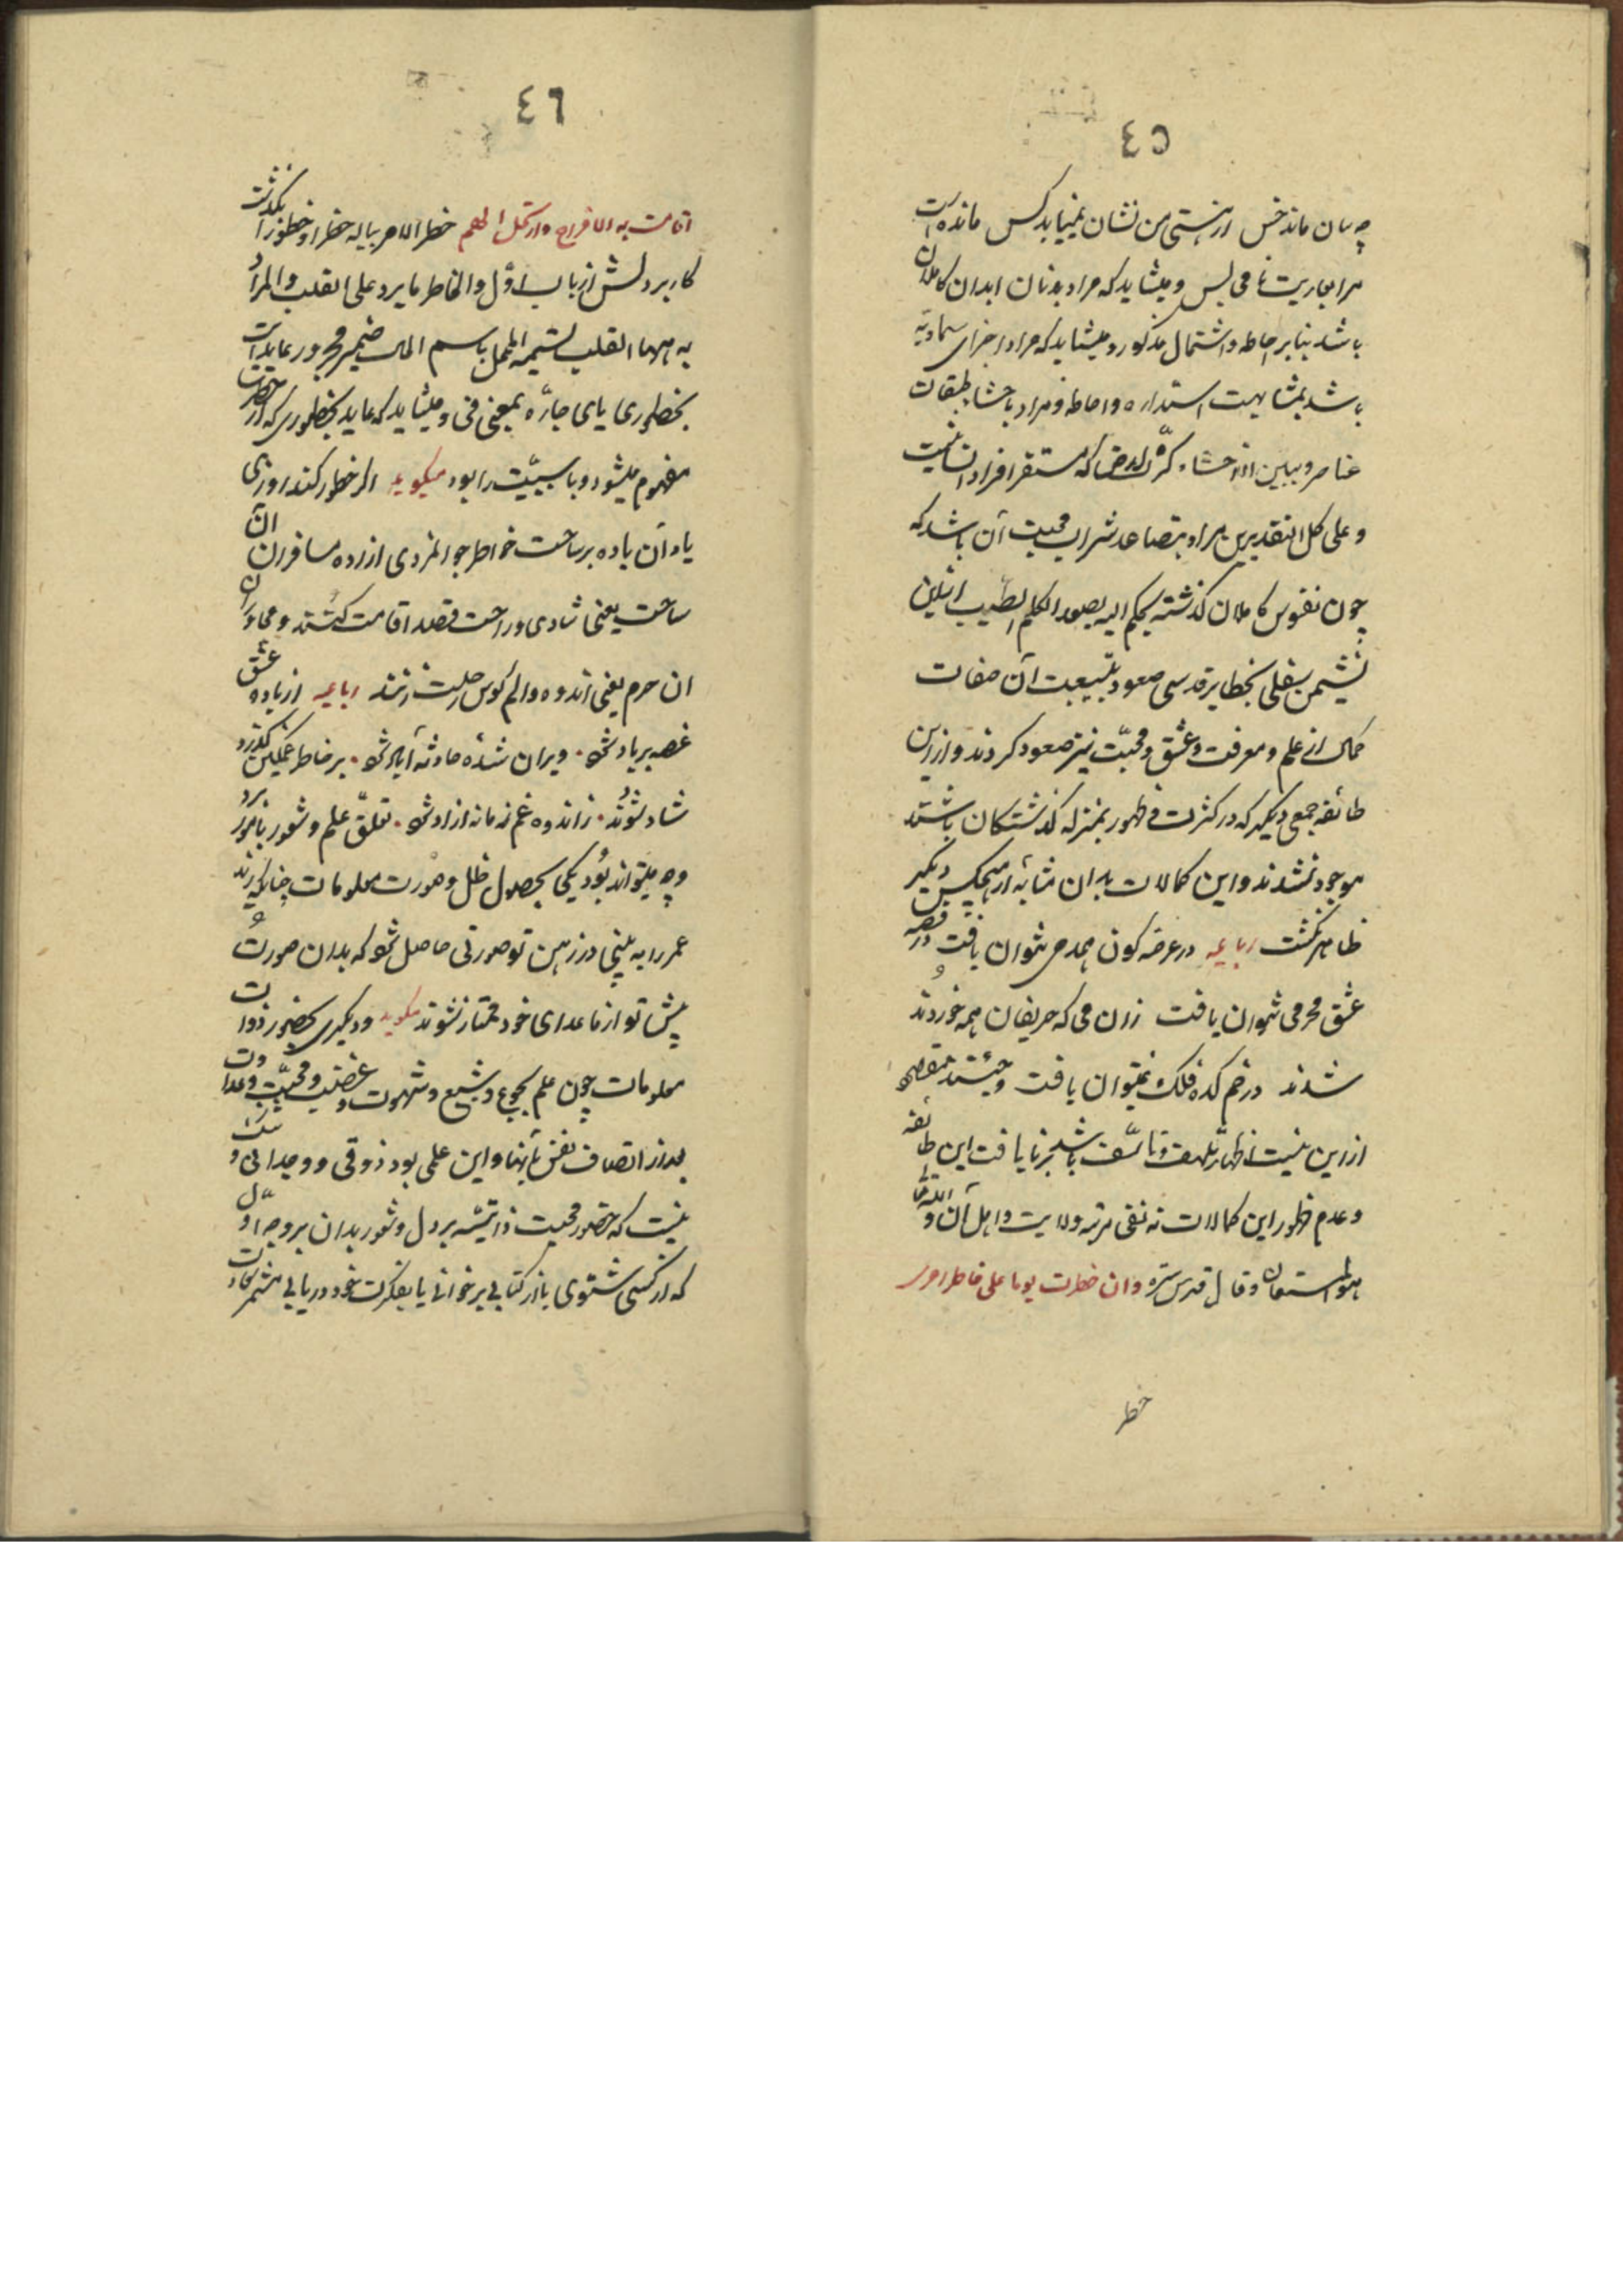 ٤٥
چسان ماند خس از هستی من نشان نمییابد کس مانده است
مرا عاریت نامی بس و میشاید که مراد بدنان ابدان کاملان
باشد بنابر احاطه و اشتمال مذکور و میشاید که مراد اجزای سماویّه
باشد بمشابهت استداره و احاطه و مراد باحشا طبقات
عناصر و ببین احشاء کرّه ارض که مستقر افراد انسانیست
و علی کل التقدیرین مراد بتصاعد شراب محبت آن باشد که
چون نفوس کاملان گذشته بحکم الیه یصعد الکلم الطیب ازین
نشیمن سفلی بخطایر قدسی صعود بتبعیت آن صفات
کمال از علم و معرفت و عشق و محبّت نیز صعود کردند و از این
طائفه جمعی دیگر که در کثرت ظهور بمنزله گذشتگان باشند
موجود نشدند و این کمالات بدان مثابه از هیچکس دیگر
ظاهر نگشت رباعیه در عرضه کون همدمی نتوان یافت در قصه
عشق محرمی نتوان یافت زان می که حریفان همه خوردند و
شدند در خم کده فلک نمیتوان یافت
ازین بیت اظهار تلهف و تاسّف باشد بر نایافت این طائفه
و عدم ظهور این کمالات نه نفی مرتبه ولایت و اهل آن و الله
هو المستعان و قال قدس سره وان خطرت یوما علی خاطر امرء
خطر
٤٦
اقامت به الافراح وارتحل الهم خطر الامر بباله خطرا و خطورا بگذشت
کار بر دلش از باب اوّل والخاطر ما یرد علی القلب والمراد
به ههنا القلب تسمیه المحل باسم الحال ضمیر مجرور عایدست
بخطوری یای جارّه بمعنی فی و میشاید که عاید بخطوری که از خطرت
مفهوم میشود و با سببیّت را بود میگوید اگر خطور کند روزی
یاد آن باده بر ساحت خواطر جوانمردی آزاده مسافران آن
ساحت یعنی شادی و راحت قصد اقامت کنند و مجاوران
ان حرم یعنی اندوه و الم کوس رحلت زنند رباعیه از باده عشق
غصه بر باد شو. ویران شدهٔ حادثه آباد شو. بر خاطر غمگین گذرد
شاد شود. زاندوه غم زمانه آزاد شو. تعلّق علم و شعور بامور
وجه میتواند بود یکی بحصول ظل و صورت معلومات چنانکه زید
عمر را به بینی در ذهن تو صورتی حاصل شو که بدان صورت
پیش تو از ماعدای خود ممتاز نشوند میگوید و دیگری بحضور ذوات
معلومات چون علم بجوع و شبع و شهوت و غضب و محبّت و عداوت
بعد از اتصاف نفس بآنها و این علمی بود ذوقی و وجدانی و شک
نیست که حضور محبت ذاتیّه بر دل و شعور بدان بر وجه اوّل
که از کسی شنوی یا از کتابی برخوانی یا بفکرت خود دریابی مثمر نجات